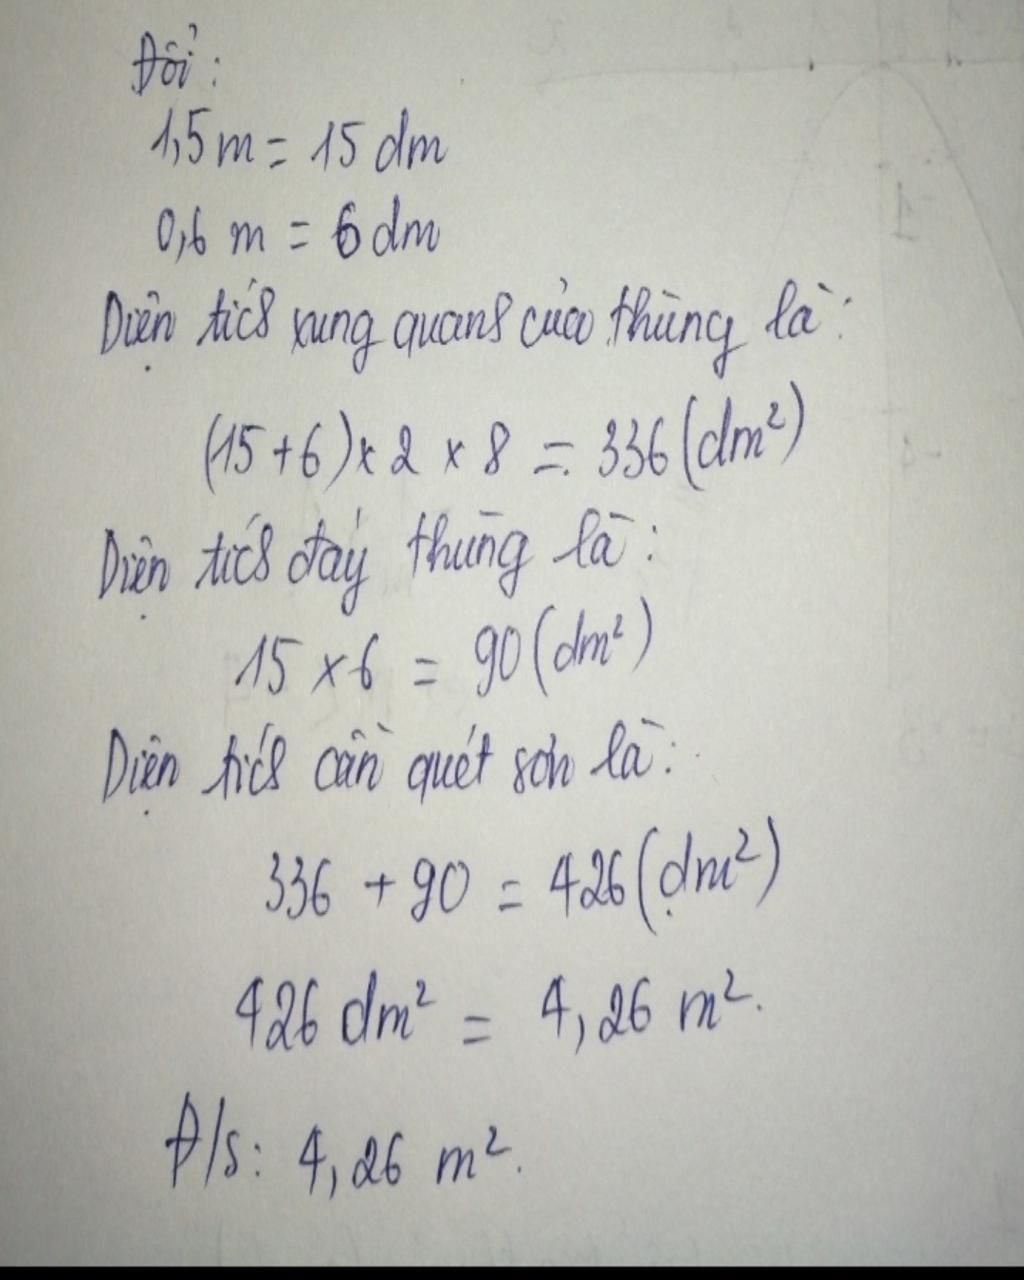 Đổi:
1,5 m = 15 dm
0,6 m = 6 dm
Diện tích xung quanh của thùng là:
(15 + 6) x 2 x 8 = 336 (dm²)
Diện tích đáy thùng là:
15 x 6 = 90 (dm²)
Diện tích cần quét sơn là:
336 + 90 = 426 (dm²)
426 dm² = 4,26 m².
Đ/s: 4,26 m².